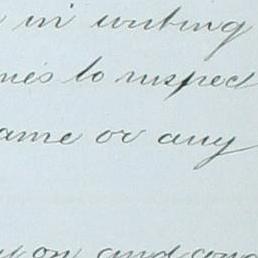 in writing
mes to inspect
ame or any
on and